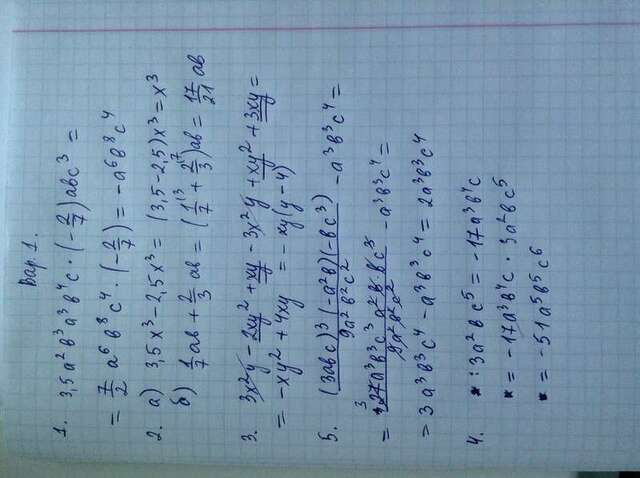 Вар. 1.
1. 3,5a²b³a³b⁴c · (-2/7)abc³ =
= 7/2 a⁶b⁸c⁴ · (-2/7) = -a⁶b⁸c⁴
2. а) 3,5x³-2,5x³ = (3,5-2,5)x³ = x³
б) 1/7 ab + 2/3 ab = (1/7 ⁽³ + 2/3 ⁽⁷)ab = 17/21 ab
3. 3x²y - 2xy² + xy - 3x²y + xy² + 3xy =
= -xy² + 4xy = -xy(y-4)
5. (3abc)³(-a²b)(-bc³)/9a²b²c² - a³b³c⁴ =
= 27a³b³c³a²b·bc³/9a²b²c² - a³b³c⁴ =
3
= 3a³b³c⁴ - a³b³c⁴ = 2a³b³c⁴
4. * : 3a²bc⁵ = -17a³b⁴c
* = -17a³b⁴c · 3a²bc⁵
* = -51a⁵b⁵c⁶